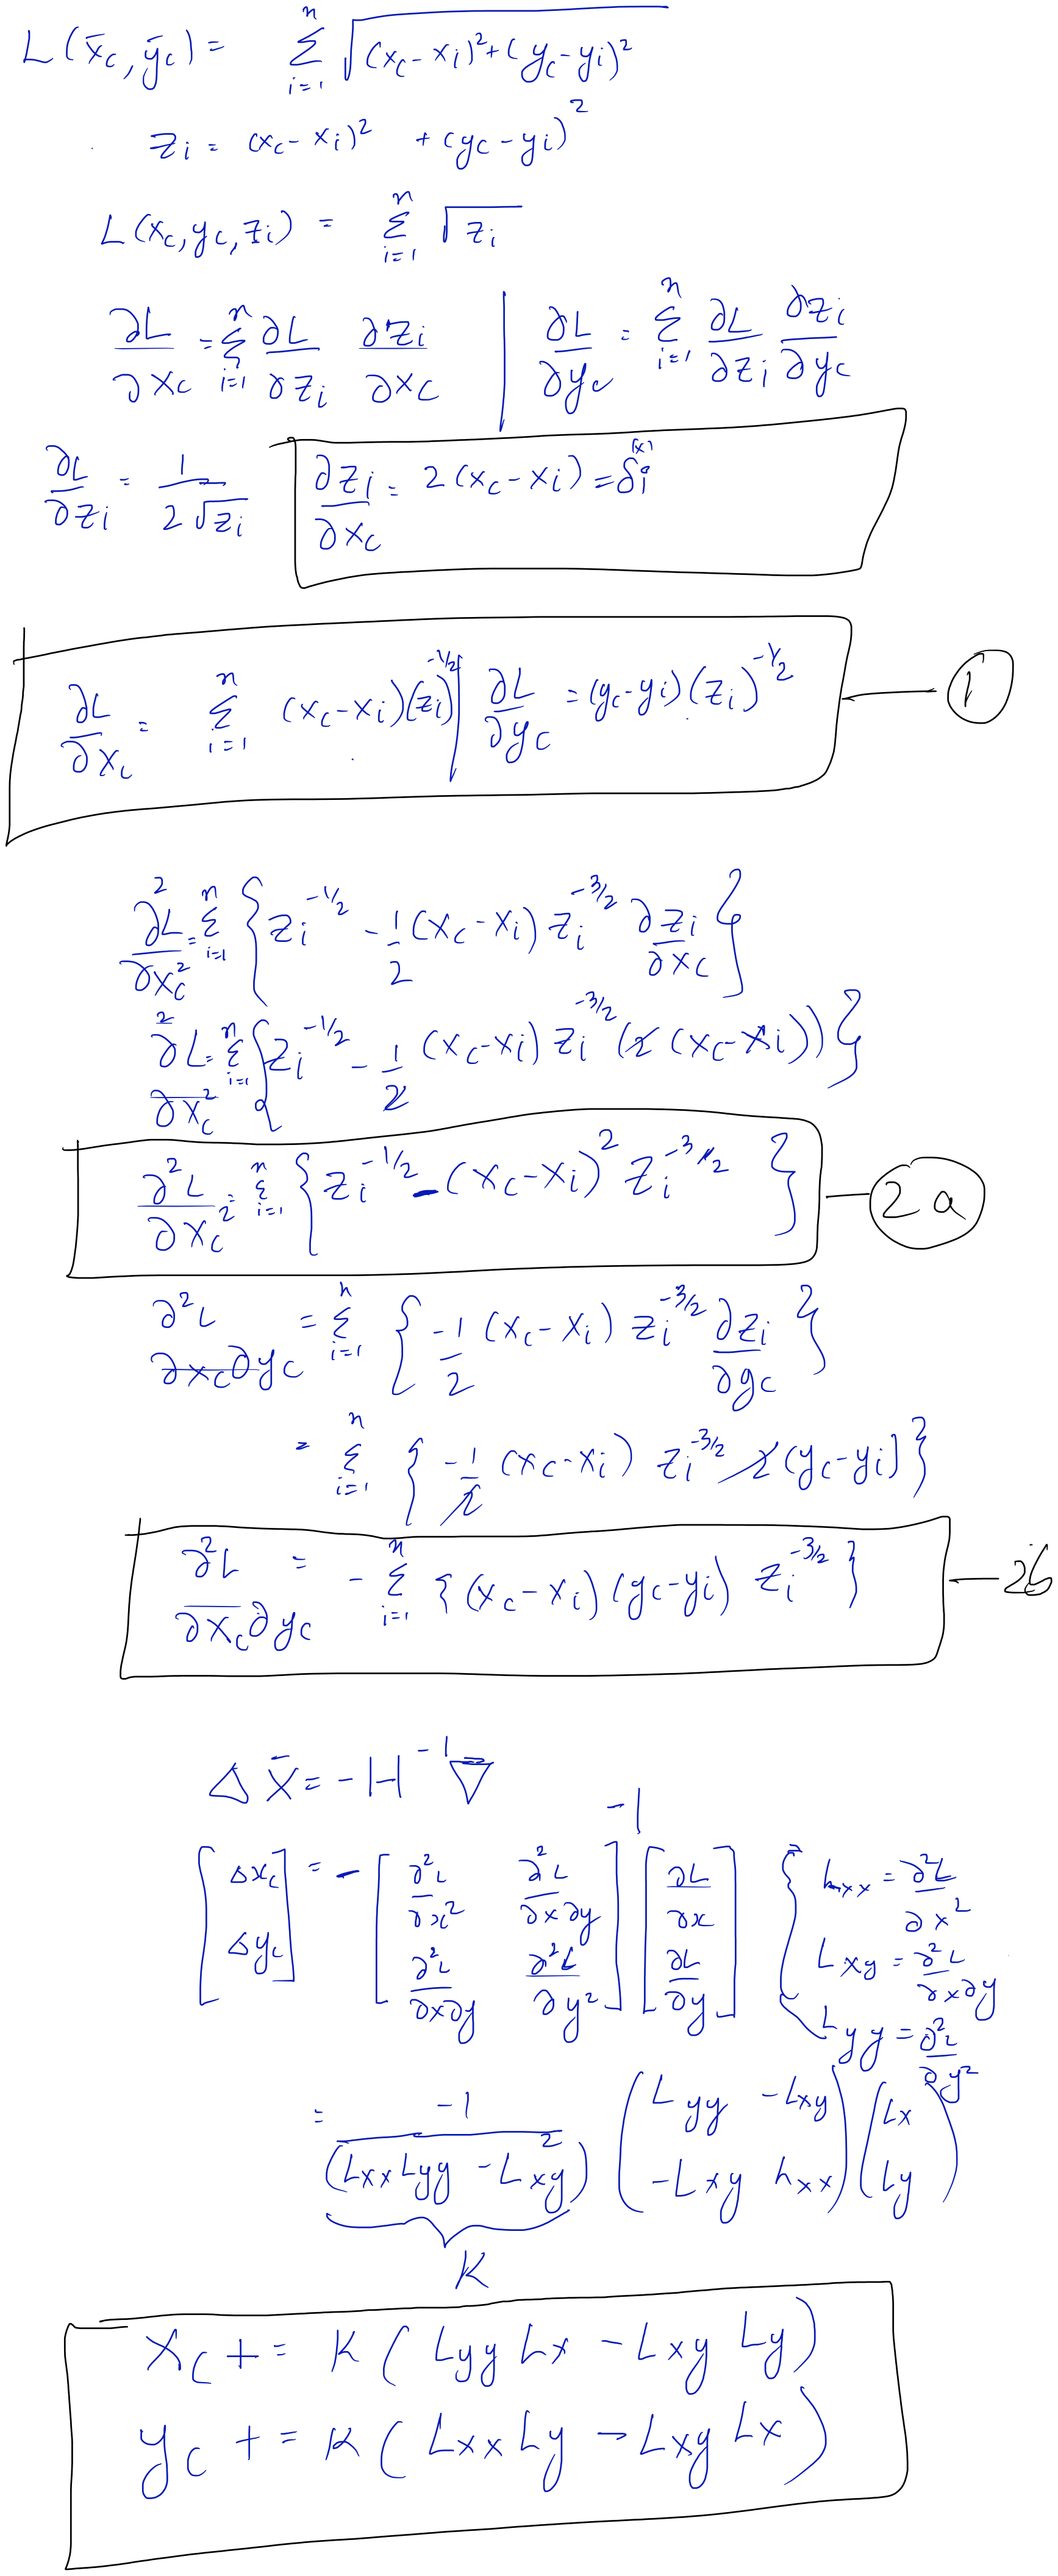 L(x̄c, ȳc) = Σ_{i=1}^{n} √((xc - xi)² + (yc - yi)²)
zi = (xc - xi)² + (yc - yi)²
L(xc, yc, zi) = Σ_{i=1}^{n} √zi
∂L/∂xc = Σ_{i=1}^{n} ∂L/∂zi ∂zi/∂xc | ∂L/∂yc = Σ_{i=1}^{n} ∂L/∂zi ∂zi/∂yc
∂L/∂zi = 1/(2√zi) ∂zi/∂xc = 2(xc - xi) = δi^(x)
∂L/∂xc = Σ_{i=1}^{n} (xc - xi)(zi)^{-1/2} | ∂L/∂yc = (yc - yi)(zi)^{-1/2} 1
∂²L/∂xc² = Σ_{i=1}^{n} {zi^{-1/2} - 1/2 (xc - xi) zi^{-3/2} ∂zi/∂xc}
∂²L/∂xc² = Σ_{i=1}^{n} {zi^{-1/2} - 1/2 (xc - xi) zi^{-3/2} (2(xc - xi))}
∂²L/∂xc² = Σ_{i=1}^{n} {zi^{-1/2} - (xc - xi)² zi^{-3/2}} 2a
∂²L/∂xc∂yc = Σ_{i=1}^{n} {-1/2 (xc - xi) zi^{-3/2} ∂zi/∂yc}
= Σ_{i=1}^{n} {-1/2 (xc - xi) zi^{-3/2} 2(yc - yi)}
∂²L/∂xc∂yc = - Σ_{i=1}^{n} {(xc - xi)(yc - yi) zi^{-3/2}} 2b
Δx̄ = -H^{-1} ∇
[Δxc; Δyc] = -[∂²L/∂x² ∂²L/∂x∂y; ∂²L/∂x∂y ∂²L/∂y²]^{-1} [∂L/∂x; ∂L/∂y]
{Lxx = ∂²L/∂x²
Lxy = ∂²L/∂x∂y
Lyy = ∂²L/∂y²
= -1/(Lxx Lyy - Lxy²) (Lyy -Lxy; -Lxy Lxx)(Lx; Ly)
K
xc += K(Lyy Lx - Lxy Ly)
yc += K(Lxx Ly - Lxy Lx)